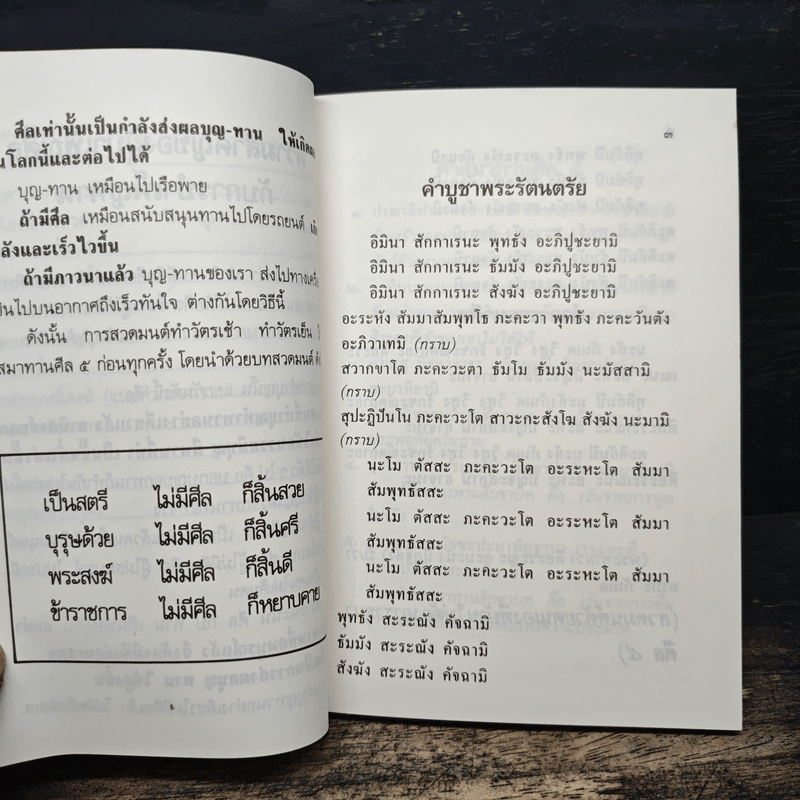 ศีลเท่านั้นเป็นกำลังส่งผลบุญ-ทาน ให้เกิด
โลกนี้และต่อไปได้
บุญ-ทาน เหมือนไปเรือพาย
ถ้ามีศีล เหมือนสนับสนุนทานไปโดยรถยนต์
ลังและเร็วไวขึ้น
ถ้ามีภาวนาแล้ว บุญ-ทานของเรา ส่งไปทางเครื่
งินไปบนอากาศถึงเร็วทันใจ ต่างกันโดยวิธีนี้
ดังนั้น การสวดมนต์ทำวัตรเช้า ทำวัตรเย็น
สมาทานศีล ๕ ก่อนทุกครั้ง โดยนำด้วยบทสวดมนต์
เป็นสตรี ไม่มีศีล ก็สิ้นสวย
บุรุษด้วย ไม่มีศีล ก็สิ้นศรี
พระสงฆ์ ไม่มีศีล ก็สิ้นดี
ข้าราชการ ไม่มีศีล ก็หยาบคาย
๓
คำบูชาพระรัตนตรัย
อิมินา สักกาเรนะ พุทธัง อะภิปูชะยามิ
อิมินา สักกาเรนะ ธัมมัง อะภิปูชะยามิ
อิมินา สักกาเรนะ สังฆัง อะภิปูชะยามิ
อะระหัง สัมมาสัมพุทโธ ภะคะวา พุทธัง ภะคะวันตัง
อะภิวาเทมิ (กราบ)
สวากขาโต ภะคะวะตา ธัมโม ธัมมัง นะมัสสามิ
(กราบ)
สุปะฏิปันโน ภะคะวะโต สาวะกะสังโฆ สังฆัง นะมามิ
(กราบ)
นะโม ตัสสะ ภะคะวะโต อะระหะโต สัมมา
สัมพุทธัสสะ
นะโม ตัสสะ ภะคะวะโต อะระหะโต สัมมา
สัมพุทธัสสะ
นะโม ตัสสะ ภะคะวะโต อะระหะโต สัมมา
สัมพุทธัสสะ
พุทธัง สะระณัง คัจฉามิ
ธัมมัง สะระณัง คัจฉามิ
สังฆัง สะระณัง คัจฉามิ